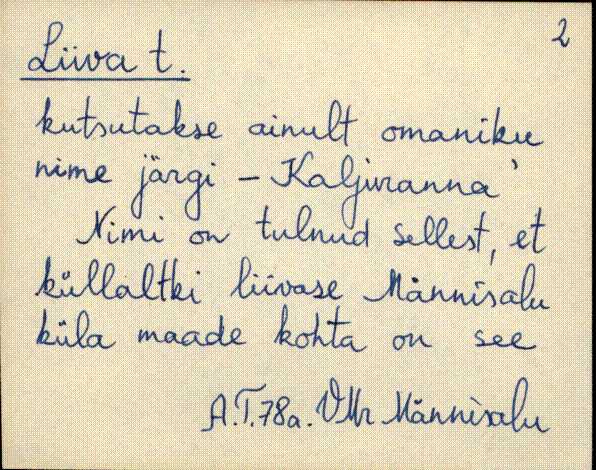 2
Liiva t.
kutsutakse ainult omaniku
nime järgi – Kaljuranna'
Nimi on tulnud sellest, et
küllaltki liivase Männisalu
küla maade kohta on see
A.T.78a. VMr Männisalu